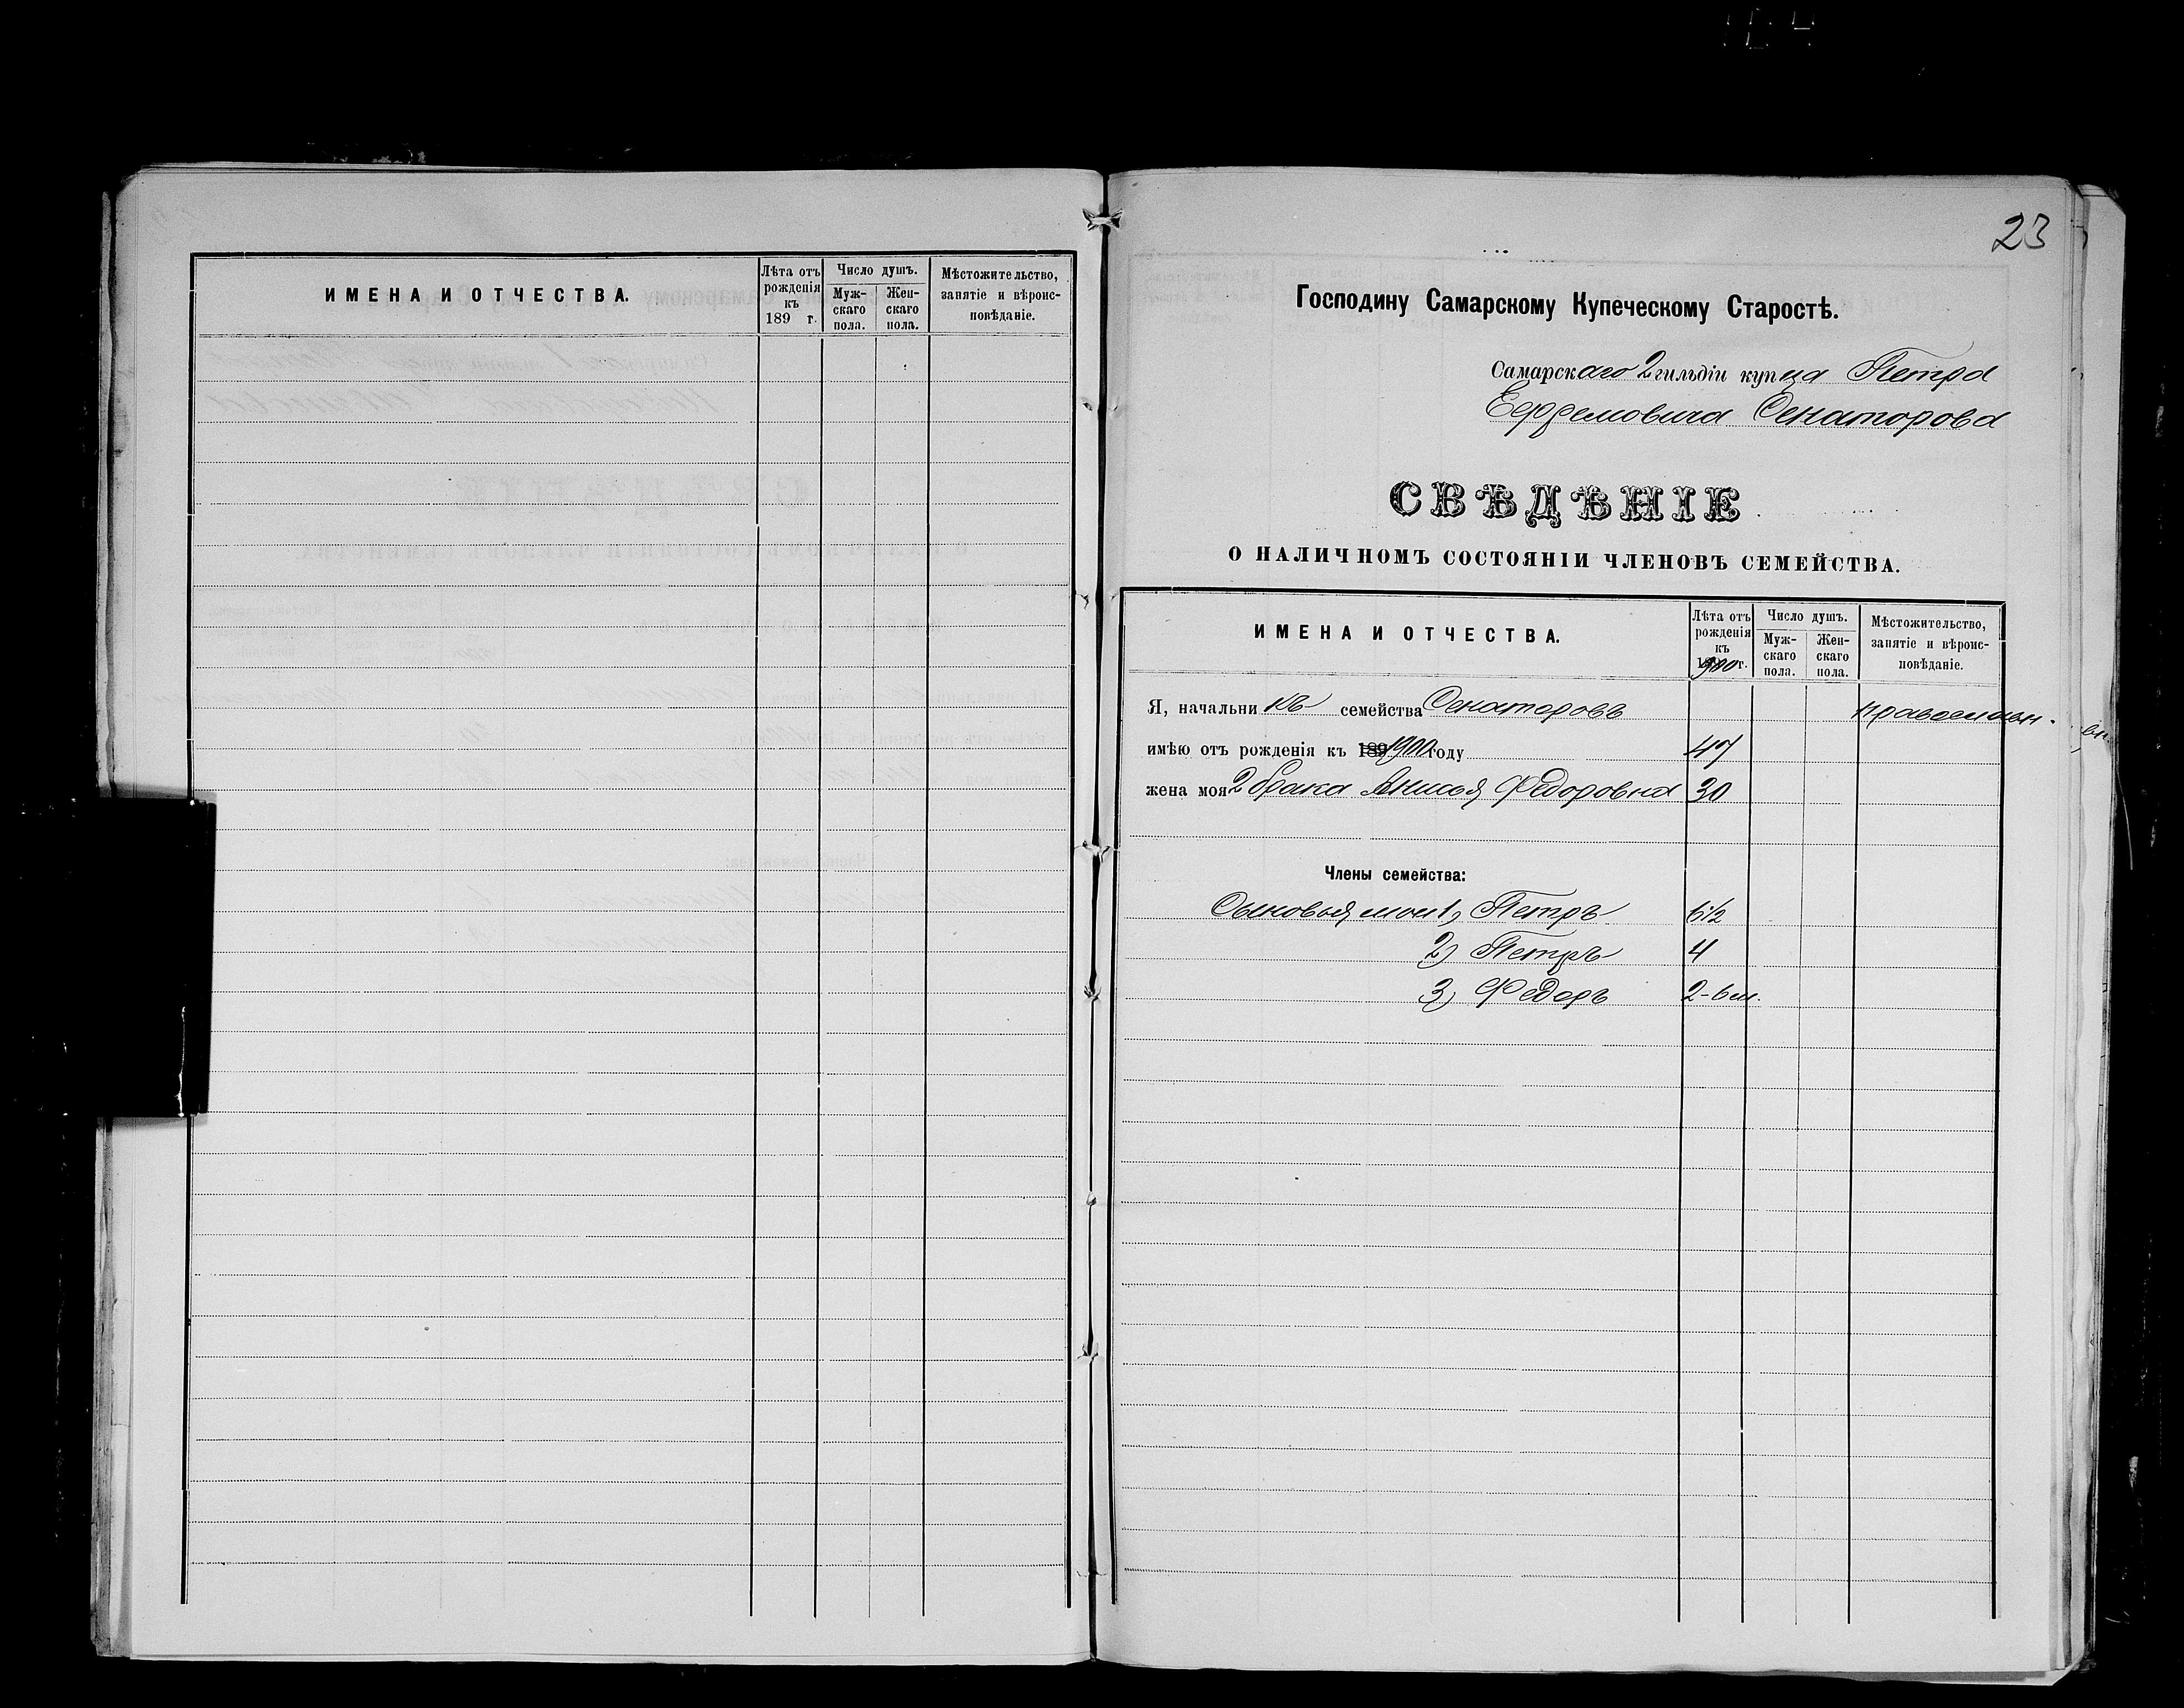 ИМЕНА И ОТЧЕСТВА.
Лѣта отъ рожденія къ 189 г.
Число душъ.
Мужскаго пола.
Женскаго пола.
Мѣстожительство, занятіе и вѣроисповѣданіе.
23
Господину Самарскому Купеческому Старостѣ.
Самарскаго 2 гильдіи купца Петра
Ефремовича Сенаторова
СВѢДѢНІЕ
О НАЛИЧНОМЪ СОСТОЯНІИ ЧЛЕНОВЪ СЕМЕЙСТВА.
ИМЕНА И ОТЧЕСТВА.
Лѣта отъ рожденія къ 1900 г.
Число душъ.
Мужскаго пола.
Женскаго пола.
Мѣстожительство, занятіе и вѣроисповѣданіе.
Я, начальникъ семейства Сенаторовъ
имѣю отъ рожденія къ 189 1900 году 47
жена моя 2 брака Анисья Федоровна 30
Члены семейства:
Сыновья мои 1, Петръ 6 1/2
2) Петръ 4
3) Федоръ 2-6 м.